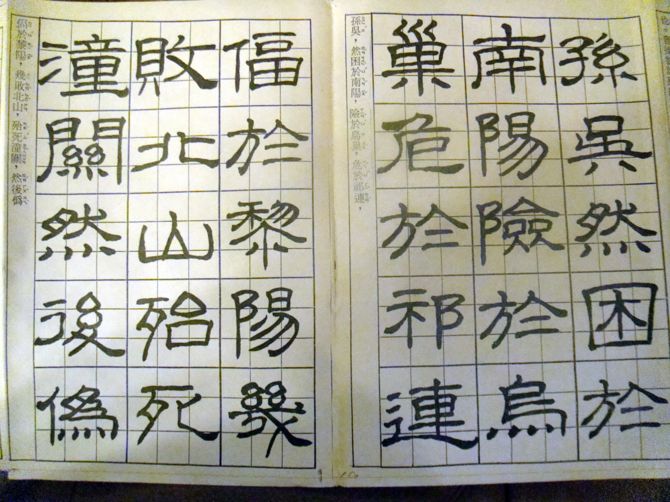 孫吳然困於
南陽險於烏
巢危於祁連
孫吳，然困於南陽，險於烏巢，危於祁連，
偪於黎陽幾
敗北山殆死
潼關然後偽
偪於黎陽，幾敗北山，殆死潼關，然後偽